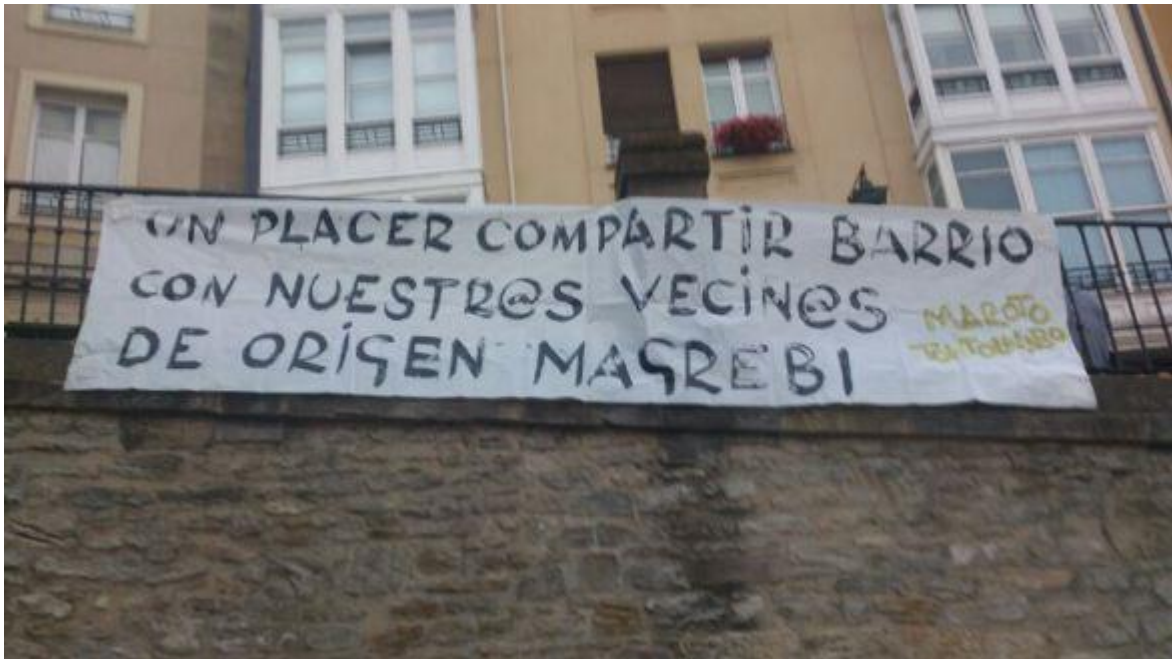 UN PLACER COMPARTIR BARRIO
CON NUESTR@S VECIN@S
DE ORÍGEN MAGREBI
MAROTO